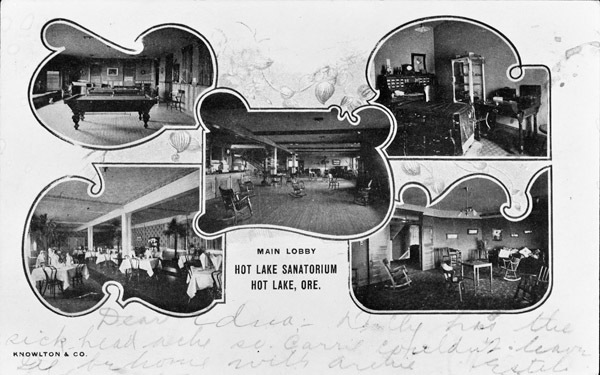 MAIN LOBBY
HOT LAKE SANATORIUM
HOT LAKE, ORE.
Dear Edna:- has the
sick head ache so Carrie couldn't leave
KNOWLTON & CO.
be home with Archie